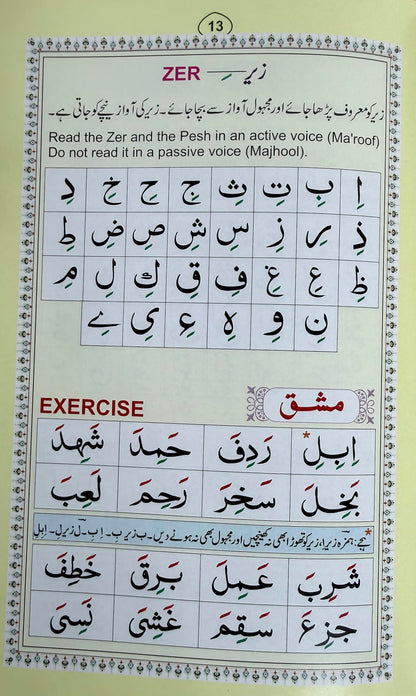 13
ZER ـِ زیر
زیر کو معروف پڑھا جائے اور مجہول آواز سے بچا جائے۔ زیر کی آواز نیچے کو جاتی ہے۔
Read the Zer and the Pesh in an active voice (Ma'roof)
Do not read it in a passive voice (Majhool).
اِ بِ تِ ثِ جِ حِ خِ دِ
ذِ رِ زِ سِ شِ صِ ضِ طِ
ظِ عِ غِ فِ قِ كِ لِ مِ
نِ وِ ہِ ءِ یِ ےِ
EXERCISE مشق
اِبِلِ* رَدِفَ حَمِدَ شَهِدَ
بَخِلَ سَخِرَ رَحِمَ لَعِبَ
*ہجے: ہمزہ زیر اِ، زیر کو تھوڑا بھی نہ کھینچیں اور مجہول بھی نہ ہونے دیں۔ ب زیر بِ۔ اِبِ۔ ل زیر لِ۔ اِبِلِ
شَرِبَ عَمِلَ بَرِقَ خَطِفَ
جَزِعَ سَقِمَ غَشِیَ نَسِیَ